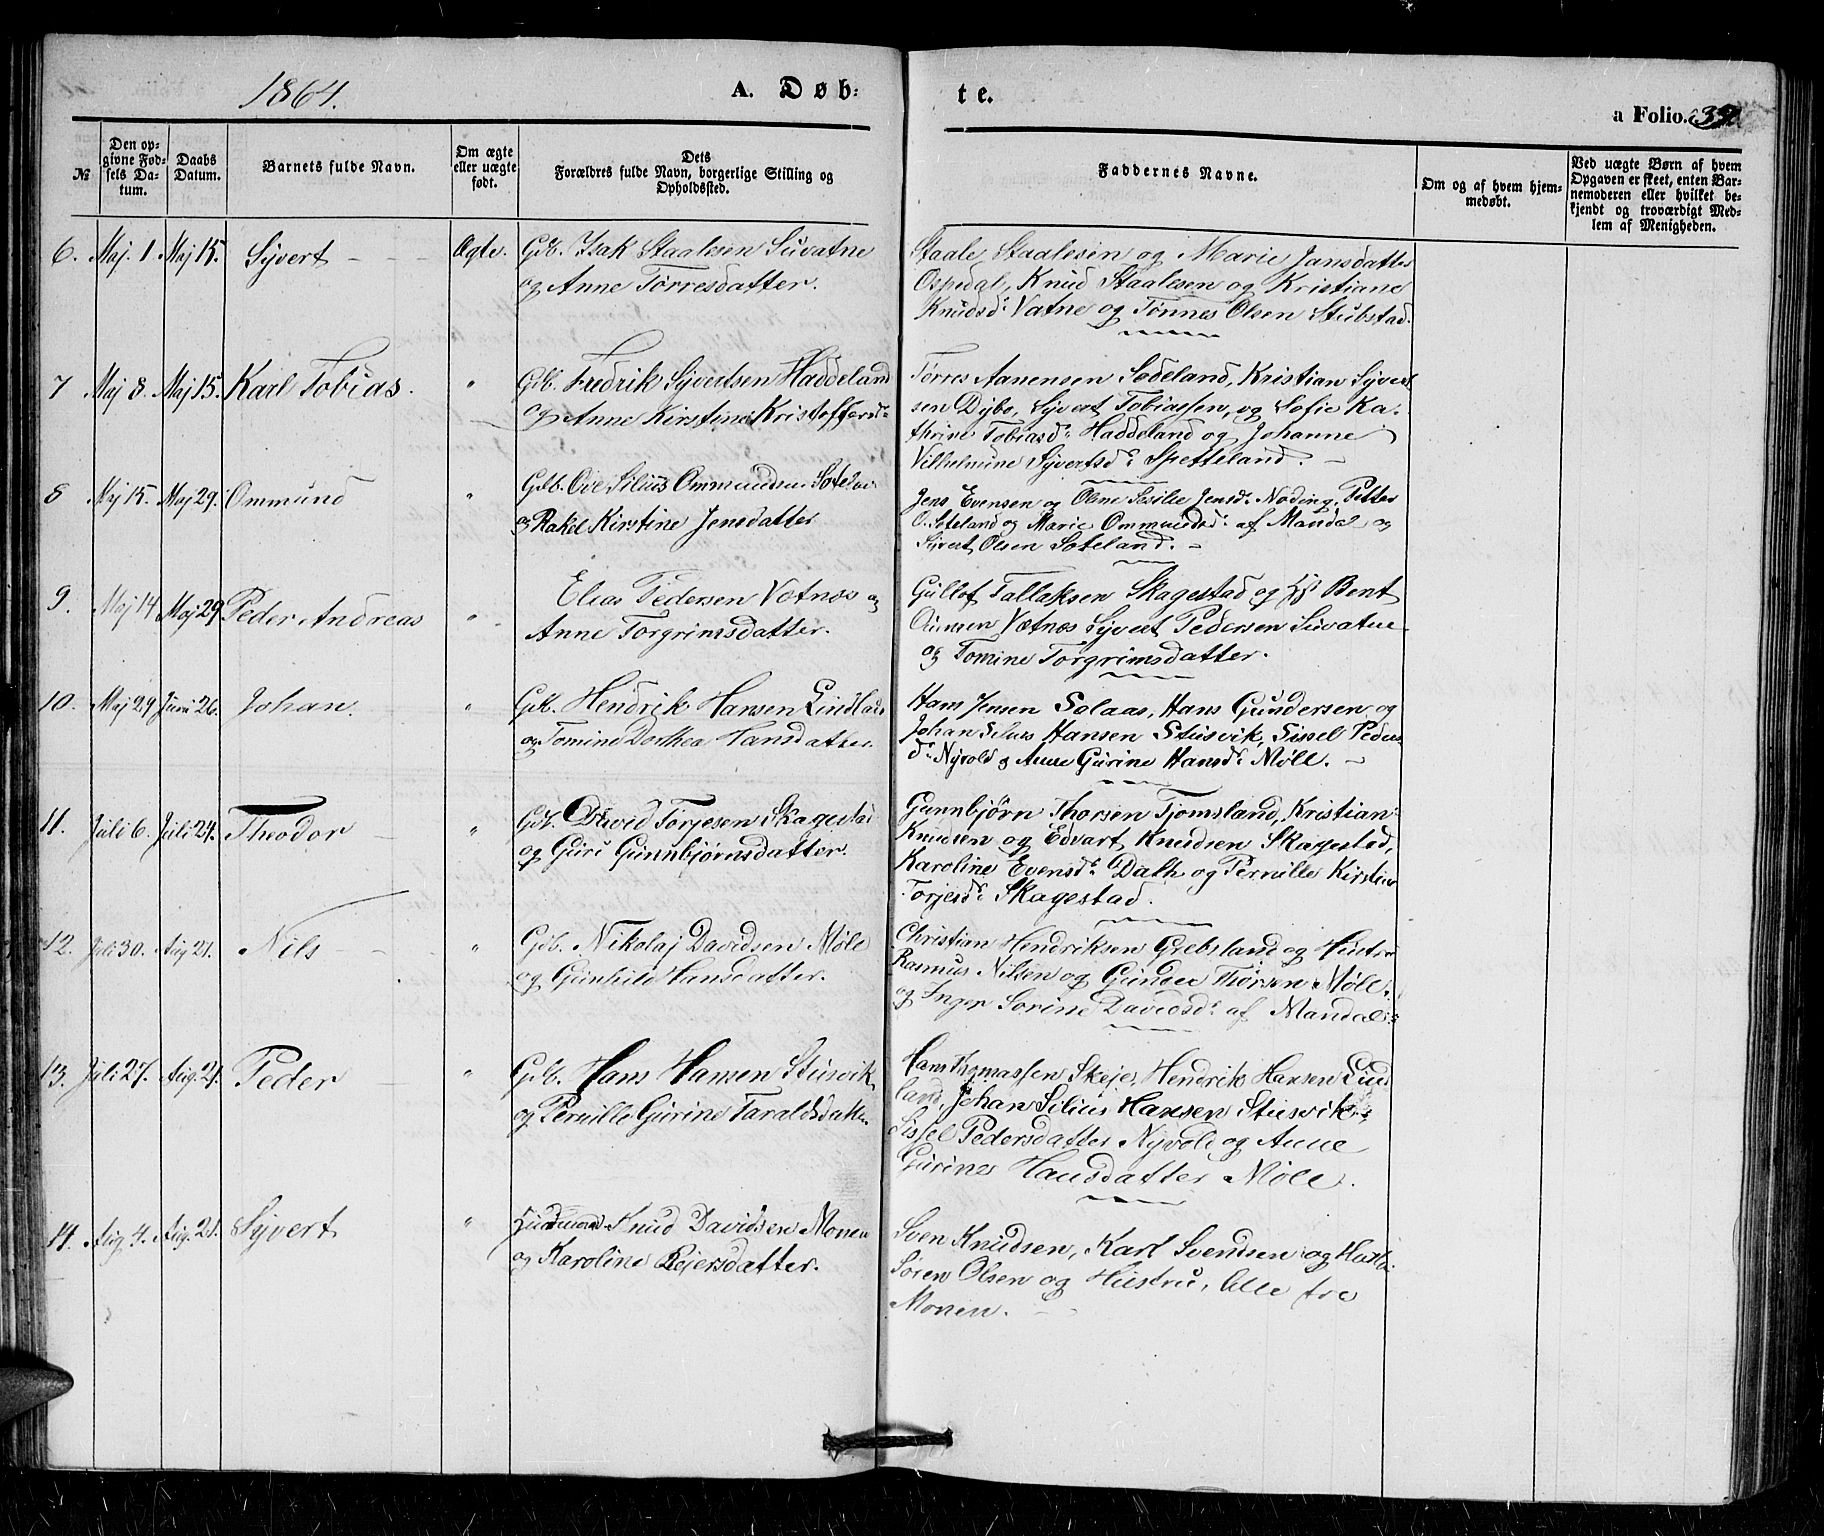 1864.
A. Døb-
te.
a Folio. 39
№
Den op-
givne Fød-
sels Da-
tum.
Daabs
Datum.
Barnets fulde Navn.
Om ægte
eller uægte
født.
Dets
Forældres fulde Navn, borgerlige Stilling og
Opholdssted.
Faddernes Navne.
Om og af hvem hjem-
medøbt.
Ved uægte Børn af hvem
Opgaven er skeet, enten Bar-
nemoderen eller hvilket be-
kjendt og troværdigt Med-
lem af Menigheden.
6. Maj. 1. Maj 15. Syvert Ægte. Gdb. Isak Staalesen Suvatne
og Anne Torresdatter.
Staale Staalesen og Marie Jansdatter
Ospedal, Knud Staalesen og Kristiane
Knudsd: Vatne og Tønnes Olsen Stubstad.
7 Maj 8. Maj 15. Karl Tobias. " Gdb. Fredrik Syvertsen Haddeland
og Anne Kirstine Kristoffersd:
Torres Aanensen Sodeland, Kristian Syvert
sen Dybo, Syvert Tobiassen, og Sofie Ka-
thrine Tobiasd: Haddeland og Johanne
Vilhelmine Syvertsd: Spetteland.
8 Maj 15. Maj 29. Ommund " Gdb. Ove Silius Ommundsen Sotelan
og Rakel Kirstine Jensdatter
Jens Evensen og Olene Sesilie Jensd: Noding, Petter
O. Soteland og Marie Ommundsd: af Mandal og
Syvert Olsen Soteland.
9. Maj 14 Maj 29 Peder Andreas " Elias Pedersen Vatnes og
Anne Torgrimsdatter.
Gullef Tallaksen Skagestad og Bent
Vætnes Syvert Pedersen Suvatne
og Tomine Torgrimsdatter.
10. Maj 29 Juni 26. Johan. " Gdb. Hendrik Hansen Lindlan
og Tomine Dorthea Hansdatter.
Hans Jensen Solaas, Hans Gundersen og
Johan Silius Hansen Stusvik, Sissel Peders
d: Nyvold og Anne Gurine Hansd: Møll.
11. Juli 6. Juli 24. Theodor " Gdb. David Torjesen Skagestad
og Guri Gunnbjørnsdatter.
Gunnbjørn Thorsen Tjomsland, Kristian
Knudsen og Edvart Knudsen Skagestad,
Karoline Evensd: Dalh og Pernille Kirstine
Torjesd: Skagestad.
12. Juli 30. Aug 21. Nils " Gdb. Nikolaj Davidsen Møll
og Gunhild Hansdatter.
Christian Hendriksen Grebsland og Hustru
Rasmus Nilsen og Gunder Thorsen Møll
og Inger Sorine Davidsd: af Mandal
13. Juli 27. Aug. 21. Peder " Gdb. Hans Hansen Stusvik
og Pernille Gurine Taraldsdatter.
Hans Tomassen Skeje, Hendrik Hansen Lind
land, Johan Silius Hansen Stusvik
Sissel Pedersdatter Nyvold og Anne
Gurines Hansdatter Møll.
14. Aug 4. Aug. 21. Syvert " Husmand Knud Davidsen Monen
og Karoline Rejersdatter.
Sven Knudsen, Karl Svendsen og
Søren Olsen og Hustru, Alle fra
Monen.